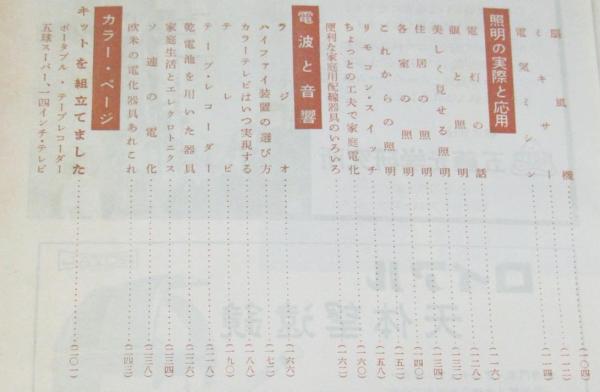 風機……(一〇四)
ミキサー……(一一二)
電気ミシン……(一一四)
照明の実際と応用
電灯の話……(一一六)
眼と照明……(一三二)
美しく見せる照明……(一三四)
住居の照明……(一四〇)
各室の照明……(一五二)
これからの照明……(一五八)
リモコン・スイッチ……(一六〇)
ちょっとの工夫で家庭電化
便利な家庭用配線器具のいろいろ……(一六二)
電波と音響
ラジオ……(一六六)
ハイファイ装置の選び方……(一七二)
カラーテレビはいつ実現する……(一八八)
テレビ……(一九〇)
テープ・レコーダー……(二一八)
乾電池を用いた器具……(二二六)
家庭生活とエレクロトニクス……(二三四)
ソ連の電化……(二三八)
カラー・ページ
欧米の電化器具あれこれ……(一四三)
キットを組立てました……(二〇一)
ポータブル・テープレコーダー
五球スーパー、一四インチ・テレビ
ロイアル
天体望遠鏡